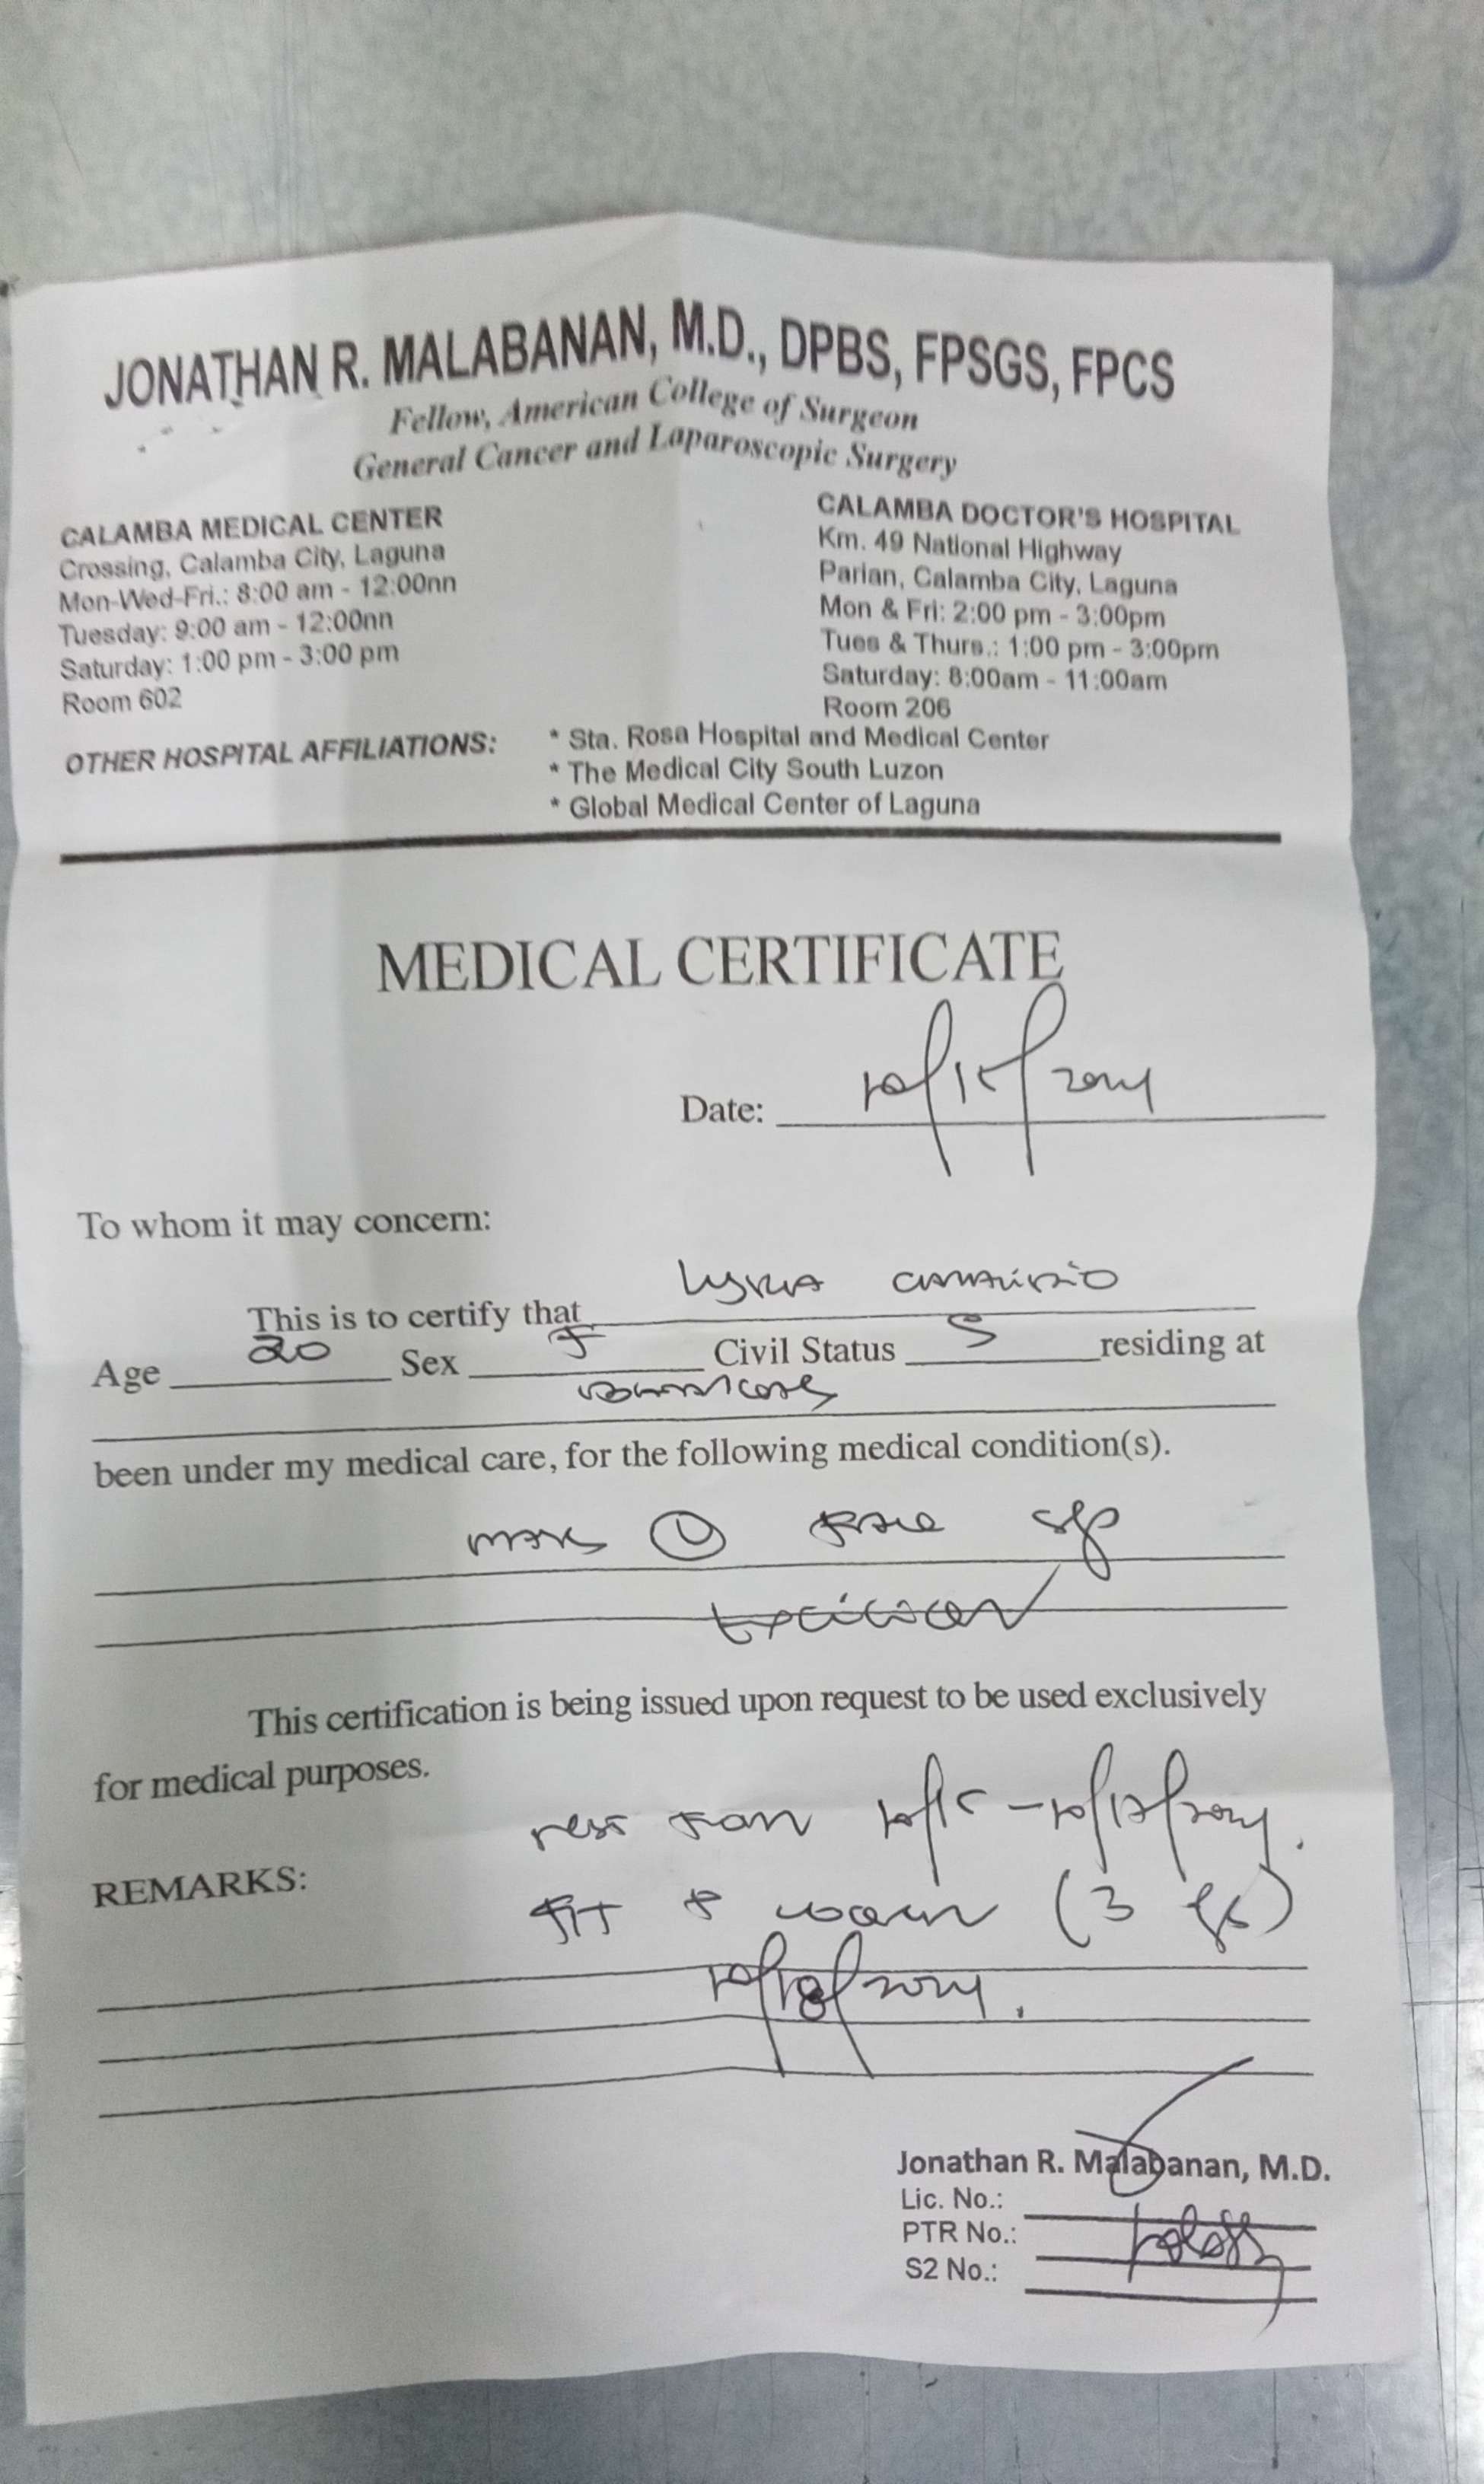 JONATHAN R. MALABANAN, M.D., DPBS, FPSGS, FPCS
Fellow, American College of Surgeon
General Cancer and Laparoscopic Surgery
CALAMBA MEDICAL CENTER
Crossing, Calamba City, Laguna
Mon-Wed-Fri.: 8:00 am - 12:00nn
Tuesday: 9:00 am - 12:00nn
Saturday: 1:00 pm - 3:00 pm
Room 602
CALAMBA DOCTOR'S HOSPITAL
Km. 49 National Highway
Parian, Calamba City, Laguna
Mon & Fri: 2:00 pm - 3:00pm
Tues & Thurs.: 1:00 pm - 3:00pm
Saturday: 8:00am - 11:00am
Room 206
OTHER HOSPITAL AFFILIATIONS:
* Sta. Rosa Hospital and Medical Center
* The Medical City South Luzon
* Global Medical Center of Laguna
MEDICAL CERTIFICATE
Date: 10/15/2024
To whom it may concern:
This is to certify that
Age 20 Sex F Civil Status S residing at
been under my medical care, for the following medical condition(s).
mass (L) face s/p
excision
This certification is being issued upon request to be used exclusively
for medical purposes.
rest from 10/15 - 10/17/2024.
REMARKS:
fit to work (3
10/18/2024.
Jonathan R. Malabanan, M.D.
Lic. No.:
PTR No.:
S2 No.: